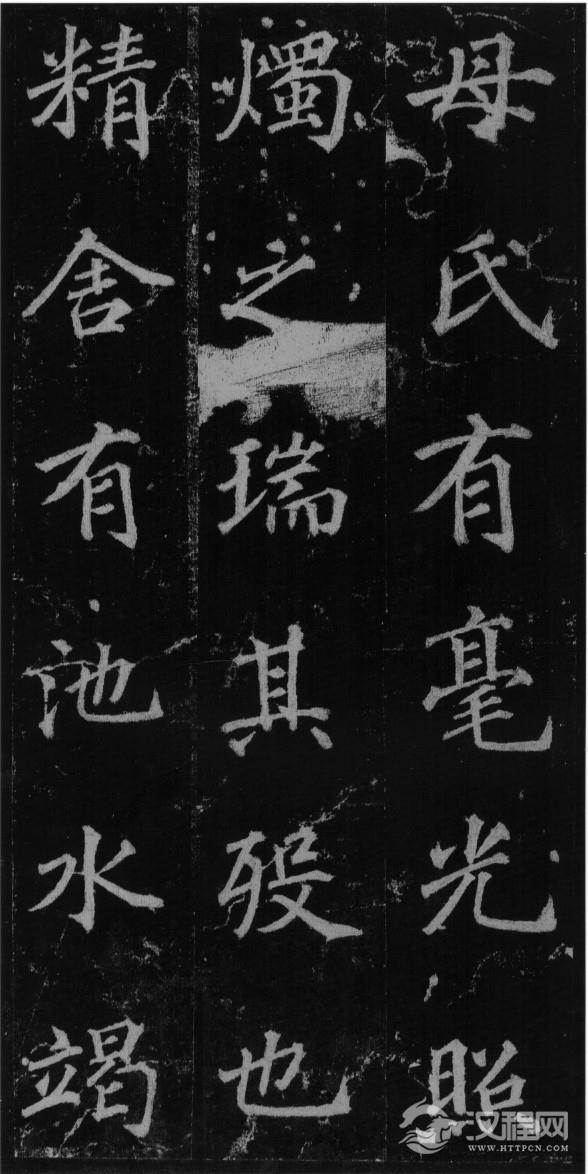 母氏有毫光照
燭之瑞其殁也
精舍有池水竭
汉程网
WWW.HTTPCN.COM